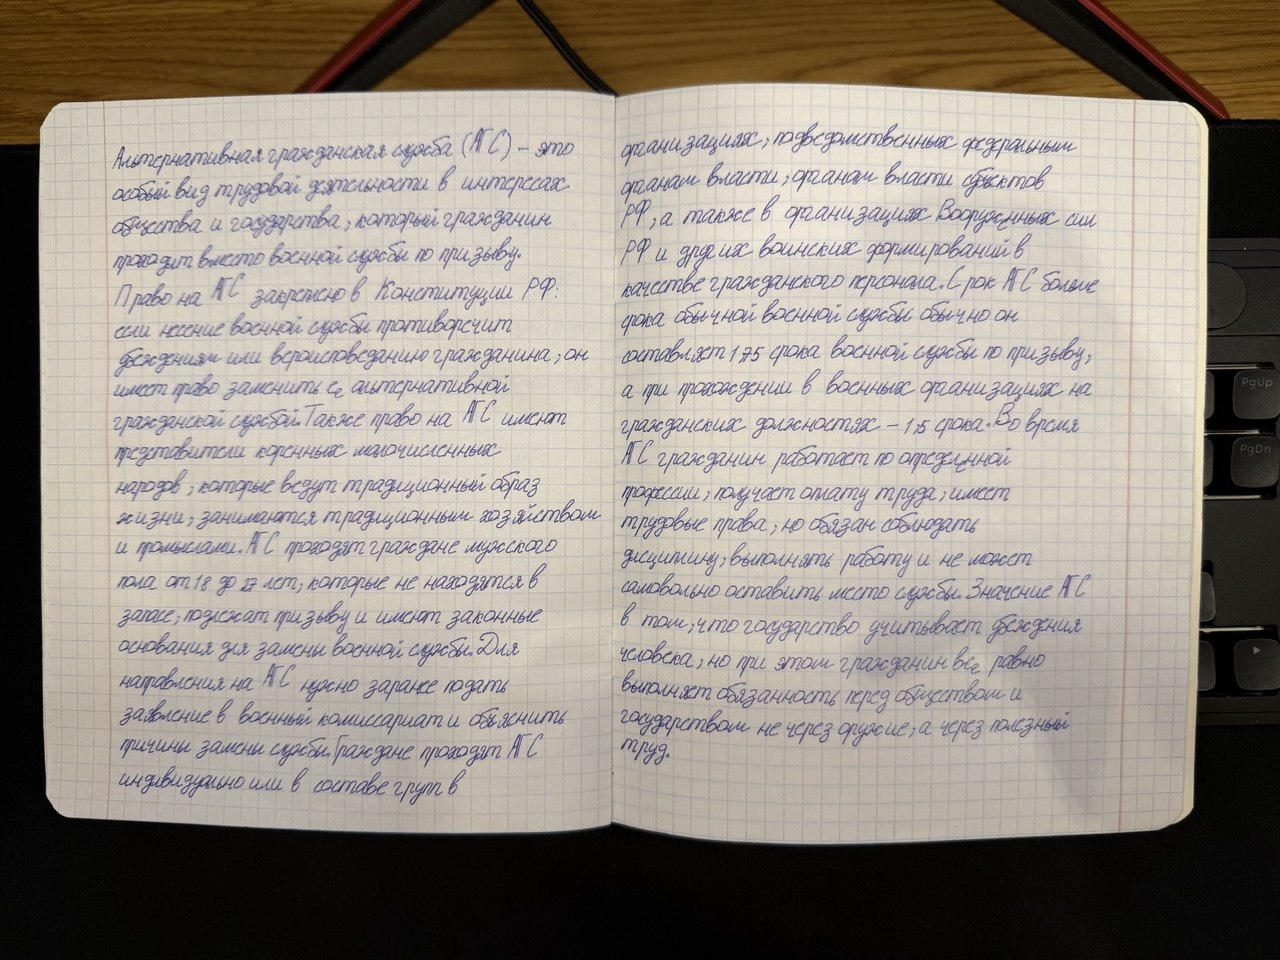 Альтернативная гражданская служба (АГС) – это
особый вид трудовой деятельности в интересах
общества и государства, который гражданин
проходит вместо военной службы по призыву.
Право на АГС закреплено в Конституции РФ:
если несение военной службы противоречит
убеждениям или вероисповеданию гражданина, он
имеет право заменить её альтернативной
гражданской службой. Также право на АГС имеют
представители коренных малочисленных
народов, которые ведут традиционный образ
жизни, занимаются традиционным хозяйством
и промыслами. АГС проходят граждане мужского
пола от 18 до 27 лет, которые не находятся в
запасе, подлежат призыву и имеют законные
основания для замены военной службы. Для
направления на АГС нужно заранее подать
заявление в военный комиссариат и объяснить
причины замены службы. Граждане проходят АГС
индивидуально или в составе групп в
организациях, подведомственных федеральным
органам власти, органам власти субъектов
РФ, а также в организациях Вооружённых сил
РФ и других воинских формирований в
качестве гражданского персонала. Срок АГС больше
срока обычной военной службы обычно он
составляет 1,75 срока военной службы по призыву,
а при прохождении в военных организациях на
гражданских должностях – 1,5 срока. Во время
АГС гражданин работает по определённой
профессии, получает оплату труда, имеет
трудовые права, но обязан соблюдать
дисциплину, выполнять работу и не может
самовольно оставить место службы. Значение АГС
в том, что государство учитывает убеждения
человека, но при этом гражданин всё равно
выполняет обязанность перед обществом и
государством не через оружие, а через полезный
труд.
PgUp
PgDn